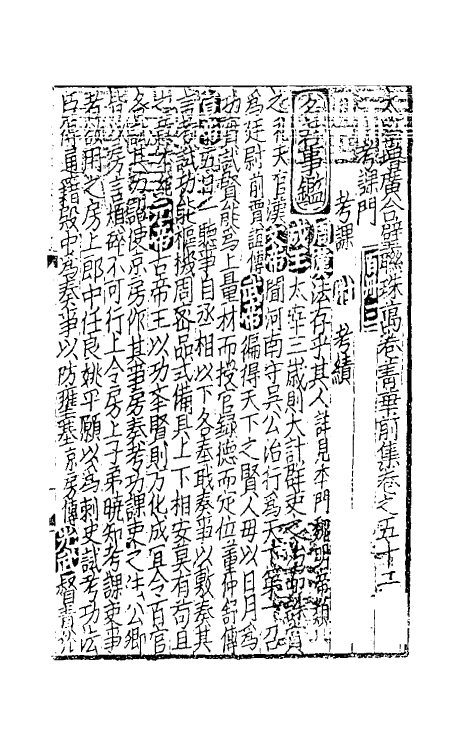 太學增廣合璧聯珠萬卷菁華前集卷之五十二
考課門
考課 附 考績
君臣事鑑 周漢 法存乎其人 詳見本門魏明帝類
成王 太宰三歲則大計群吏之治而誅賞
之 天官 漢文帝 聞河南守吳公治行為天下第一召
為廷尉 前賈誼傳 武帝 徧得天下之賢人毋以日月為
功實試賢能為上量材而授官錄德而定位 董仲舒傳
宣帝 五日一聽事自丞相以下各奉職奏事以敷奏其
言考試功能樞機周密品式備具上下相安莫有苟且
之意 本紀 元帝 古帝王以功舉賢則万化成宜令百官
各試其功詔使京房作其事房奏考功課吏之法公卿
皆以房言煩碎不可行上令房上子弟曉知考課吏事
者欲用之房上郎中任良姚平願以為刺史試考功法
臣得通籍殿中為奏事以防壅塞 京房傳 光武 督責